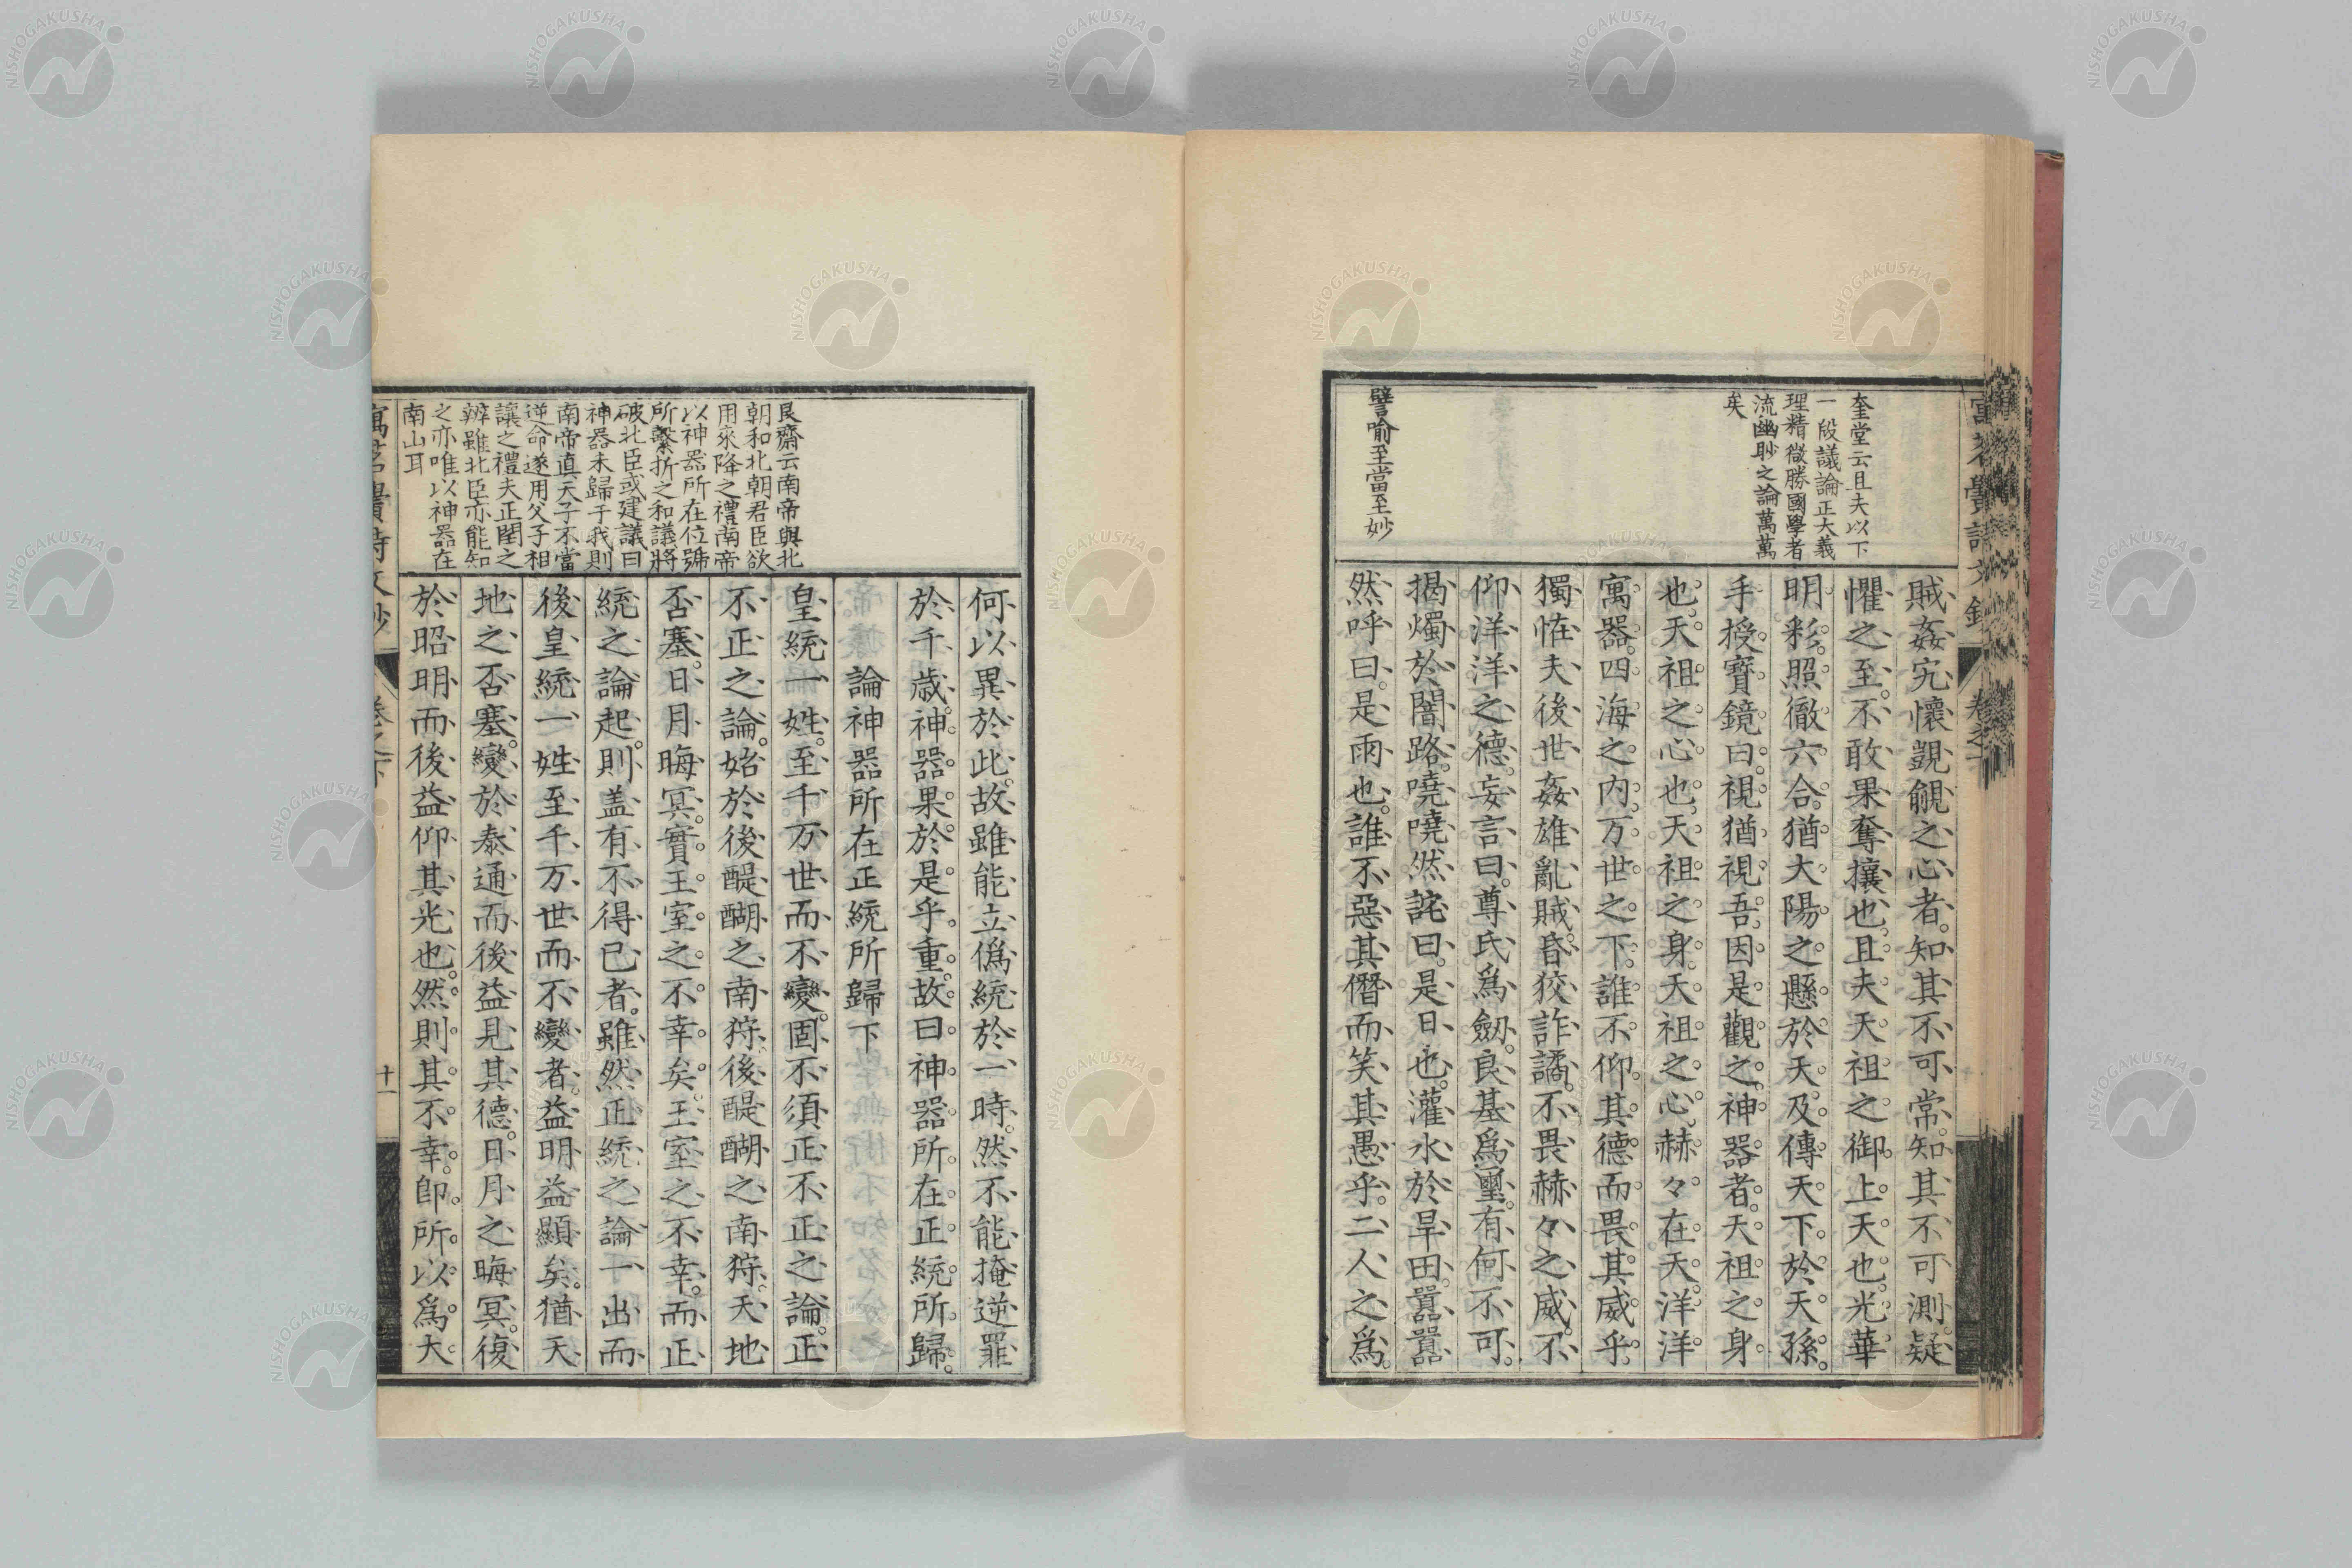 奎堂云且夫以下
一段議論正大義
理精微勝國學者
流幽眇之論萬萬
矣
譬喻至當至妙
賊姦宄懷覬覦之心者。知其不可常。知其不可測。疑
懼之至。不敢果奪攘也。且夫天祖之御上天也。光華
明彩。照徹六合。猶大陽之懸於天。及傳天下於天孫。
手授寶鏡曰。視猶視吾。因是觀之。神器者。天祖之身
也。天祖之心也。天祖之身。天祖之心。赫々在天。洋洋
寓器。四海之內。万世之下。誰不仰其德而畏其威乎。
獨恠夫後世姦雄亂賊。昏狡詐譎。不畏赫々之威。不
仰洋洋之德。妄言曰。尊氏爲劔。良基爲璽。有何不可。
揭燭於闇路。嘵嘵然詫曰。是日也。灌水於旱田。囂囂
然呼曰。是雨也。誰不惡其僭而笑其愚乎。二人之爲。
艮齋云南帝與北
朝和北朝君臣欲
用來降之禮南帝
以神器所在位號
所繫折之和議將
破北臣或建議曰
神器未歸于我則
南帝直天子不當
逆命遂用父子相
讓之禮夫正閏之
辨雖北臣亦能知
之亦唯以神器在
南山耳
何以異於此。故雖能立僞統於一時。然不能掩逆罪
於千歲。神器果於是乎。重。故曰神器所在。正統所歸。
論神器所在正統所歸下
皇統一姓。至千万世而不變。固不須正不正之論。正
不正之論。始於後醍醐之南狩。後醍醐之南狩。天地
否塞。日月晦冥。實王室之不幸矣。王室之不幸。而正
統之論起。則盖有不得已者。雖然正統之論一出而
後皇統一姓至千万世而不變者。益明益顯矣。猶天
地之否塞。變於泰通而後益見其德。日月之晦冥。復
於昭明而後益仰其光也。然則其不幸。卽所以爲大
卷之下
十一